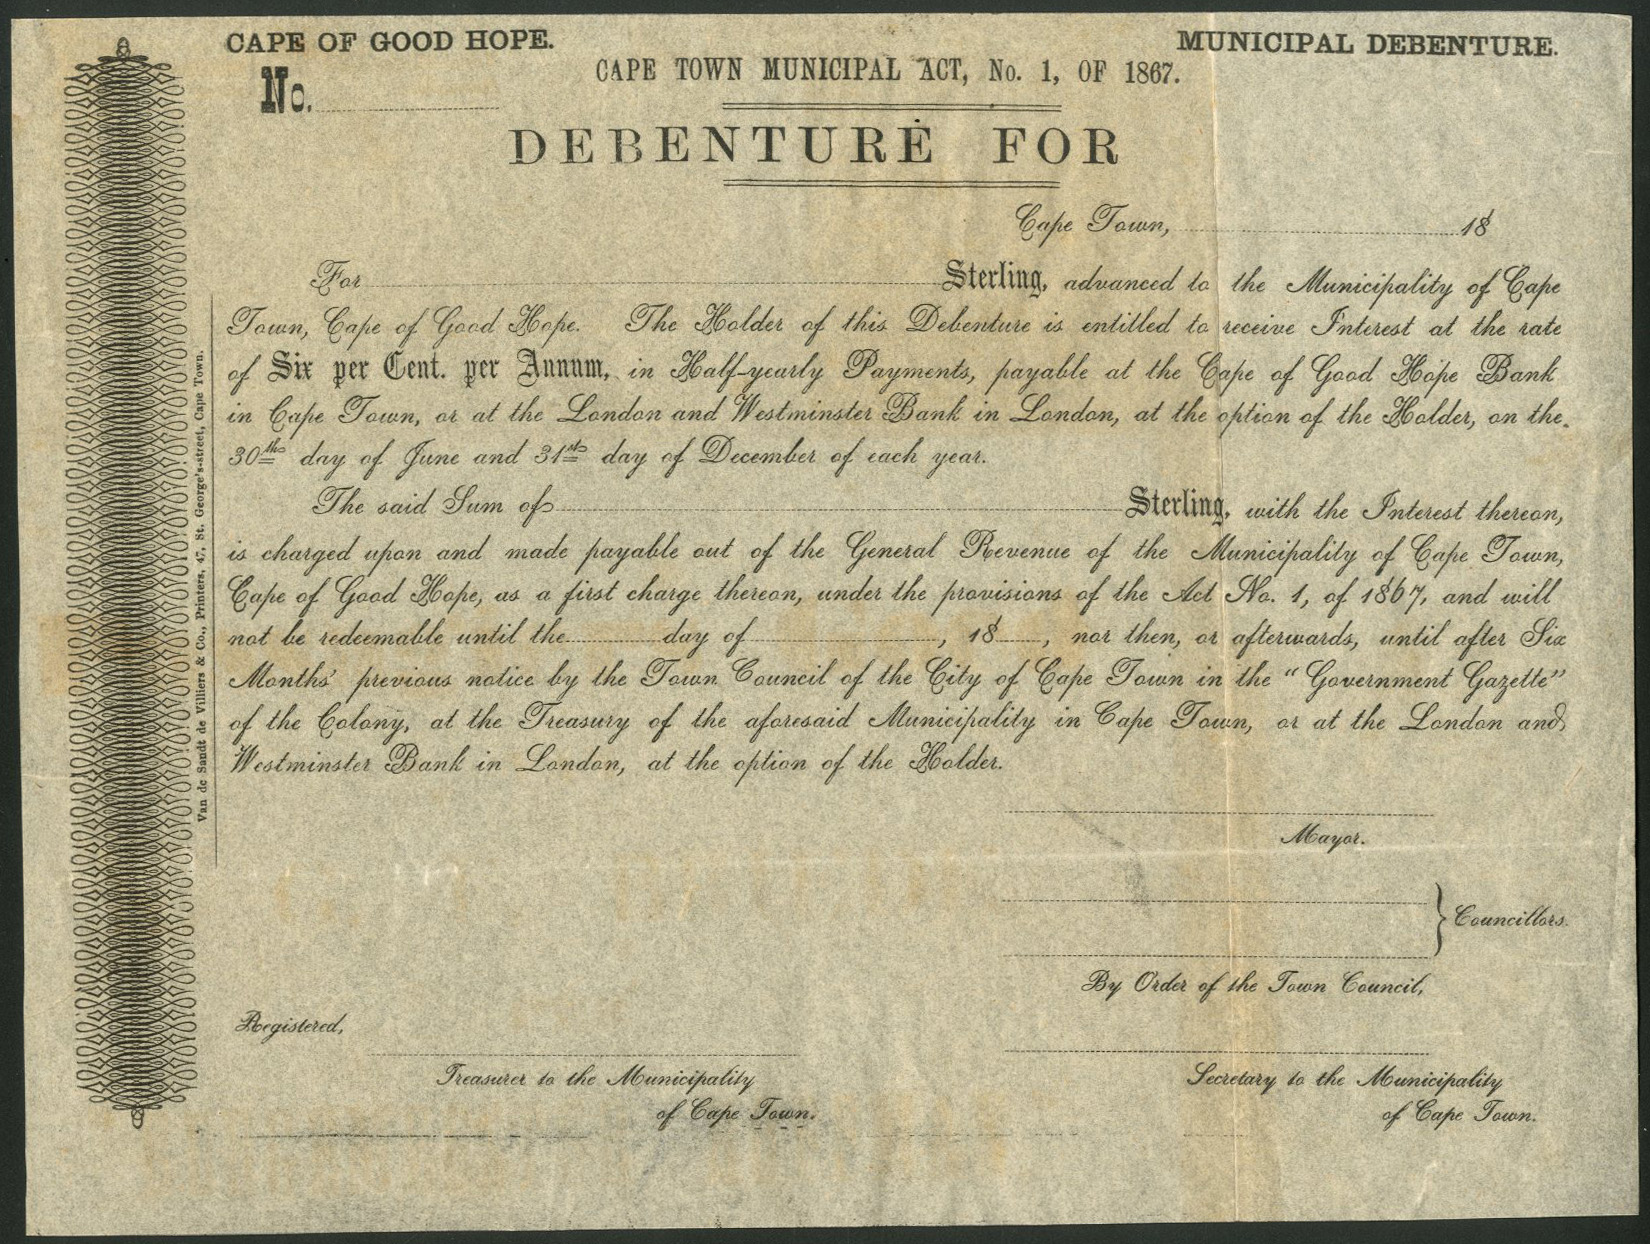 CAPE OF GOOD HOPE.
MUNICIPAL DEBENTURE.
No.
CAPE TOWN MUNICIPAL ACT, No. 1, OF 1867.
DEBENTURE FOR
Cape Town, 18
For Sterling, advanced to the Municipality of Cape
Town, Cape of Good Hope. The Holder of this Debenture is entitled to receive Interest at the rate
of Six per Cent. per Annum, in Half-yearly Payments, payable at the Cape of Good Hope Bank
in Cape Town, or at the London and Westminster Bank in London, at the option of the Holder, on the
30th day of June and 31st day of December of each year.
The said Sum of Sterling, with the Interest thereon,
is charged upon and made payable out of the General Revenue of the Municipality of Cape Town,
Cape of Good Hope, as a first charge thereon, under the provisions of the Act No. 1, of 1867, and will
not be redeemable until the day of , 18 , nor then, or afterwards, until after Six
Months' previous notice by the Town Council of the City of Cape Town in the "Government Gazette"
of the Colony, at the Treasury of the aforesaid Municipality in Cape Town, or at the London and
Westminster Bank in London, at the option of the Holder.
Mayor.
Councillors.
By Order of the Town Council,
Registered,
Treasurer to the Municipality
of Cape Town.
Secretary to the Municipality
of Cape Town.
Van de Sandt de Villiers & Co., Printers, 47, St. George's-street, Cape Town.